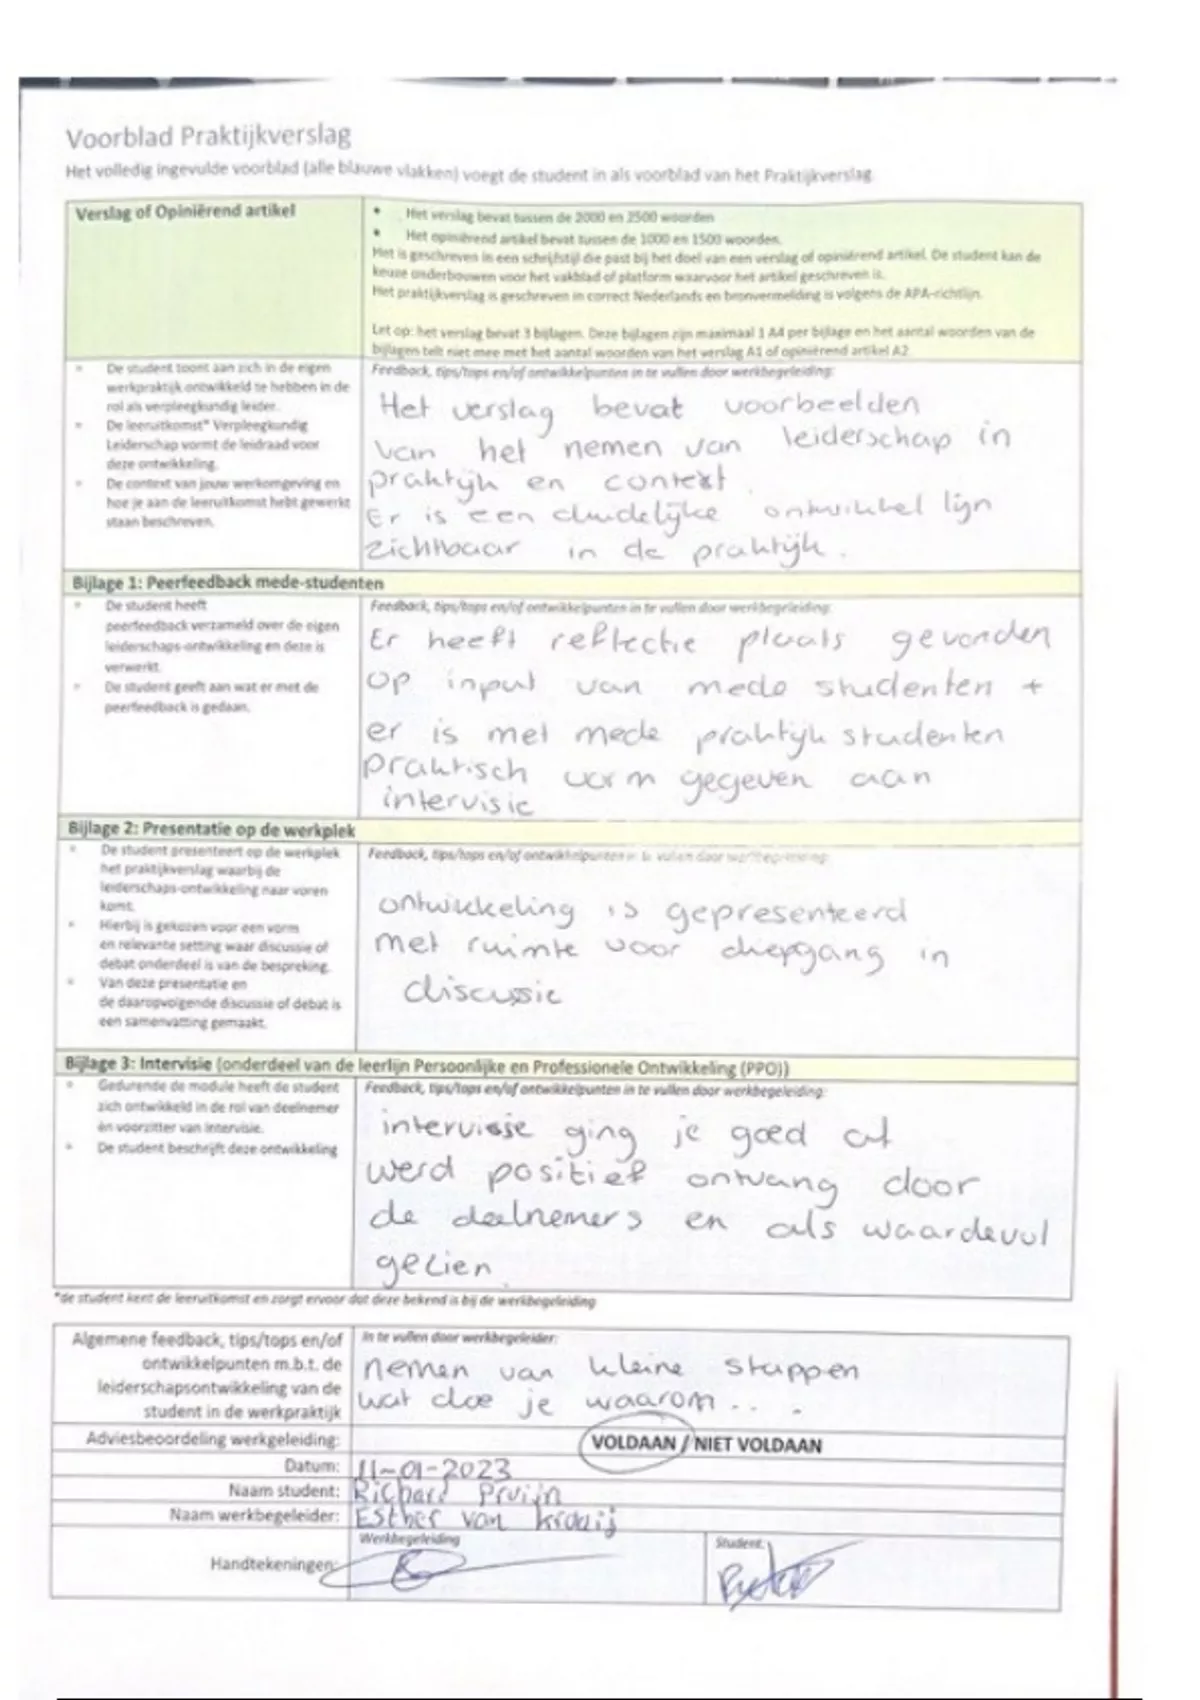 Voorblad Praktijkverslag
Het volledig ingevulde voorblad (alle blauwe vlakken) voegt de student in als voorblad van het Praktijkverslag.
Verslag of Opiniërend artikel
• Het verslag bevat tussen de 2000 en 2500 woorden
• Het opiniërend artikel bevat tussen de 1000 en 1500 woorden.
Het is geschreven in een schrijfstijl die past bij het doel van een verslag of opiniërend artikel. De student kan de
keuze onderbouwen voor het vakblad of platform waarvoor het artikel geschreven is.
Het praktijkverslag is geschreven in correct Nederlands en bronvermelding is volgens de APA-richtlijn.
Let op: het verslag bevat 3 bijlagen. Deze bijlagen zijn maximaal 1 A4 per bijlage en het aantal woorden van de
bijlagen telt niet mee met het aantal woorden van het verslag A1 of opiniërend artikel A2
• De student toont aan zich in de eigen
werkpraktijk ontwikkeld te hebben in de
rol als verpleegkundig leider.
• De leeruitkomst* Verpleegkundig
Leiderschap vormt de leidraad voor
deze ontwikkeling.
• De context van jouw werkomgeving en
hoe je aan de leeruitkomst hebt gewerkt
staan beschreven.
Feedback, tips/tops en/of ontwikkelpunten in te vullen door werkbegeleiding:
Het verslag bevat voorbeelden
van het nemen van leiderschap in
praktijk en context.
Er is een duidelijke ontwikkel lijn
zichtbaar in de praktijk.
Bijlage 1: Peerfeedback mede-studenten
• De student heeft
peerfeedback verzameld over de eigen
leiderschaps-ontwikkeling en deze is
verwerkt.
• De student geeft aan wat er met de
peerfeedback is gedaan.
Feedback, tips/tops en/of ontwikkelpunten in te vullen door werkbegeleiding:
Er heeft reflectie plaats gevonden
op input van mede studenten +
er is met mede praktijk studenten
praktisch vorm gegeven aan
intervisie
Bijlage 2: Presentatie op de werkplek
• De student presenteert op de werkplek
het praktijkverslag waarbij de
leiderschaps-ontwikkeling naar voren
komt.
• Hierbij is gekozen voor een vorm
en relevante setting waar discussie of
debat onderdeel is van de bespreking.
• Van deze presentatie en
de daaropvolgende discussie of debat is
een samenvatting gemaakt.
Feedback, tips/tops en/of ontwikkelpunten in te vullen door werkbegeleiding:
ontwikkeling is gepresenteerd
met ruimte voor diepgang in
discussie
Bijlage 3: Intervisie (onderdeel van de leerlijn Persoonlijke en Professionele Ontwikkeling (PPO))
• Gedurende de module heeft de student
zich ontwikkeld in de rol van deelnemer
én voorzitter van intervisie.
• De student beschrijft deze ontwikkeling
Feedback, tips/tops en/of ontwikkelpunten in te vullen door werkbegeleiding:
intervissie ging je goed af
werd positief ontvang door
de deelnemers en als waardevol
gezien.
*de student kent de leeruitkomst en zorgt ervoor dat deze bekend is bij de werkbegeleiding
Algemene feedback, tips/tops en/of
ontwikkelpunten m.b.t. de
leiderschapsontwikkeling van de
student in de werkpraktijk
In te vullen door werkbegeleider:
nemen van kleine stappen
wat doe je waarom...
Adviesbeoordeling werkgeleiding: VOLDAAN / NIET VOLDAAN
Datum: 11-01-2023
Naam student: Richard Pruijn
Naam werkbegeleider: Esther van Krooij
Handtekeningen:
Werkbegeleiding
Student: